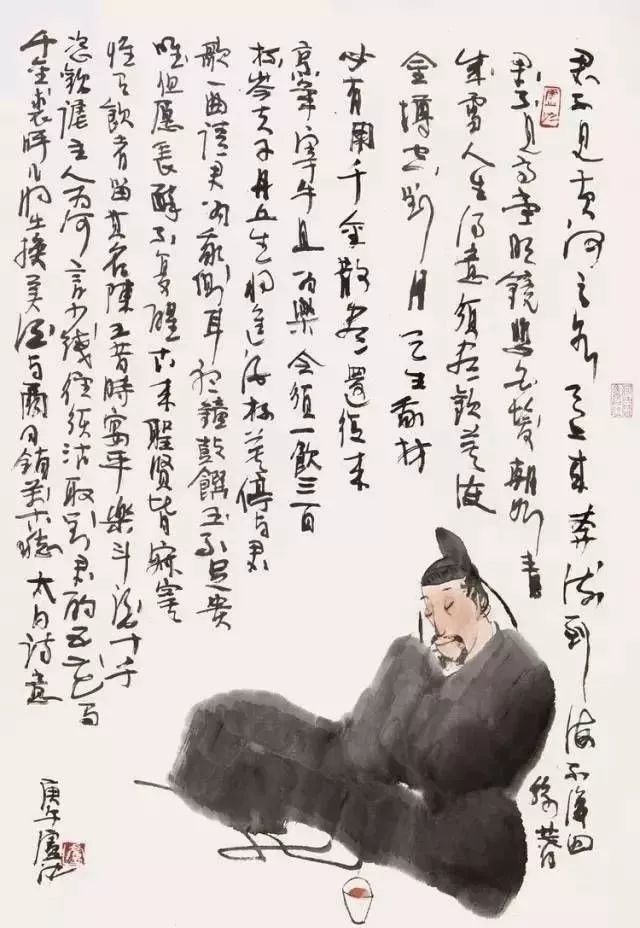 君不見黃河之水天上來奔流到海不復回
君不見高堂明鏡悲白髮朝如青絲暮
成雪人生得意須盡歡莫使
金樽空對月天生我材
必有用千金散盡還復來
烹羊宰牛且為樂會須一飲三百
杯岑夫子丹丘生將進酒杯莫停與君
歌一曲請君為我側耳聽鐘鼓饌玉不足貴
唯但愿長醉不復醒古來聖賢皆寂寞
惟有飲者留其名陳王昔時宴平樂斗酒十千
恣歡謔主人為何言少錢徑須沽取對君酌五花馬
千金裘呼兒將出換美酒與爾同銷萬古愁 太白詩意
庚午盧沉